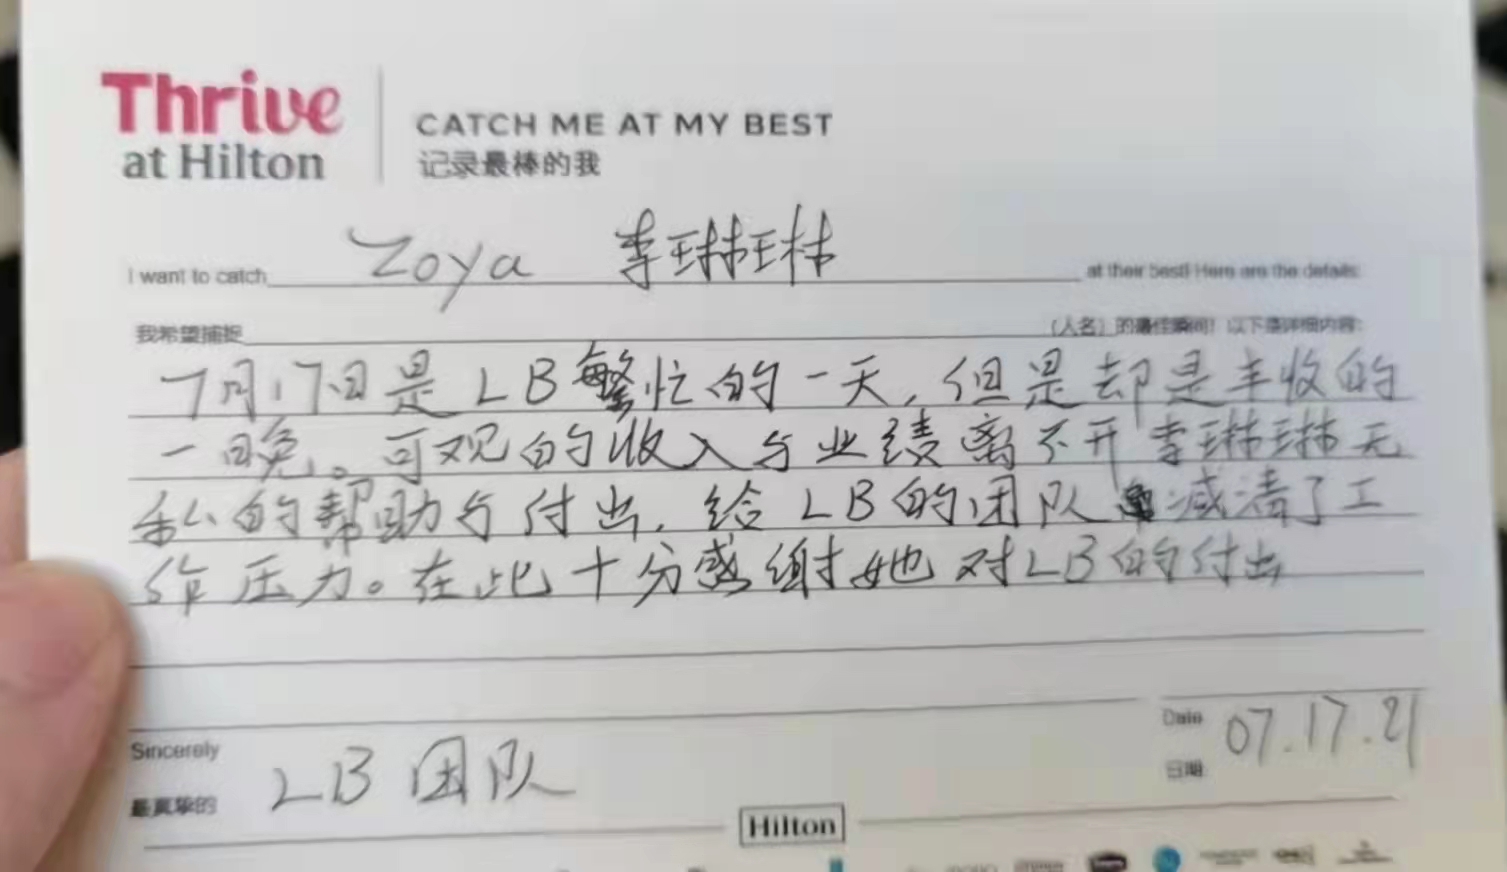 Thrive
at Hilton
CATCH ME AT MY BEST
记录最棒的我
I want to catch Zoya 李琳琳 at their best! Here are the details:
我希望捕捉 (人名) 的最佳瞬间! 以下是详细内容:
7月17日是LB繁忙的一天，但是却是丰收的
一晚。可观的收入与业绩离不开李琳琳无
私的帮助与付出，给LB的团队减清了工
作压力。在此十分感谢她对LB的付出
Sincerely
最真挚的 LB团队
Date 07.17.21
日期
Hilton